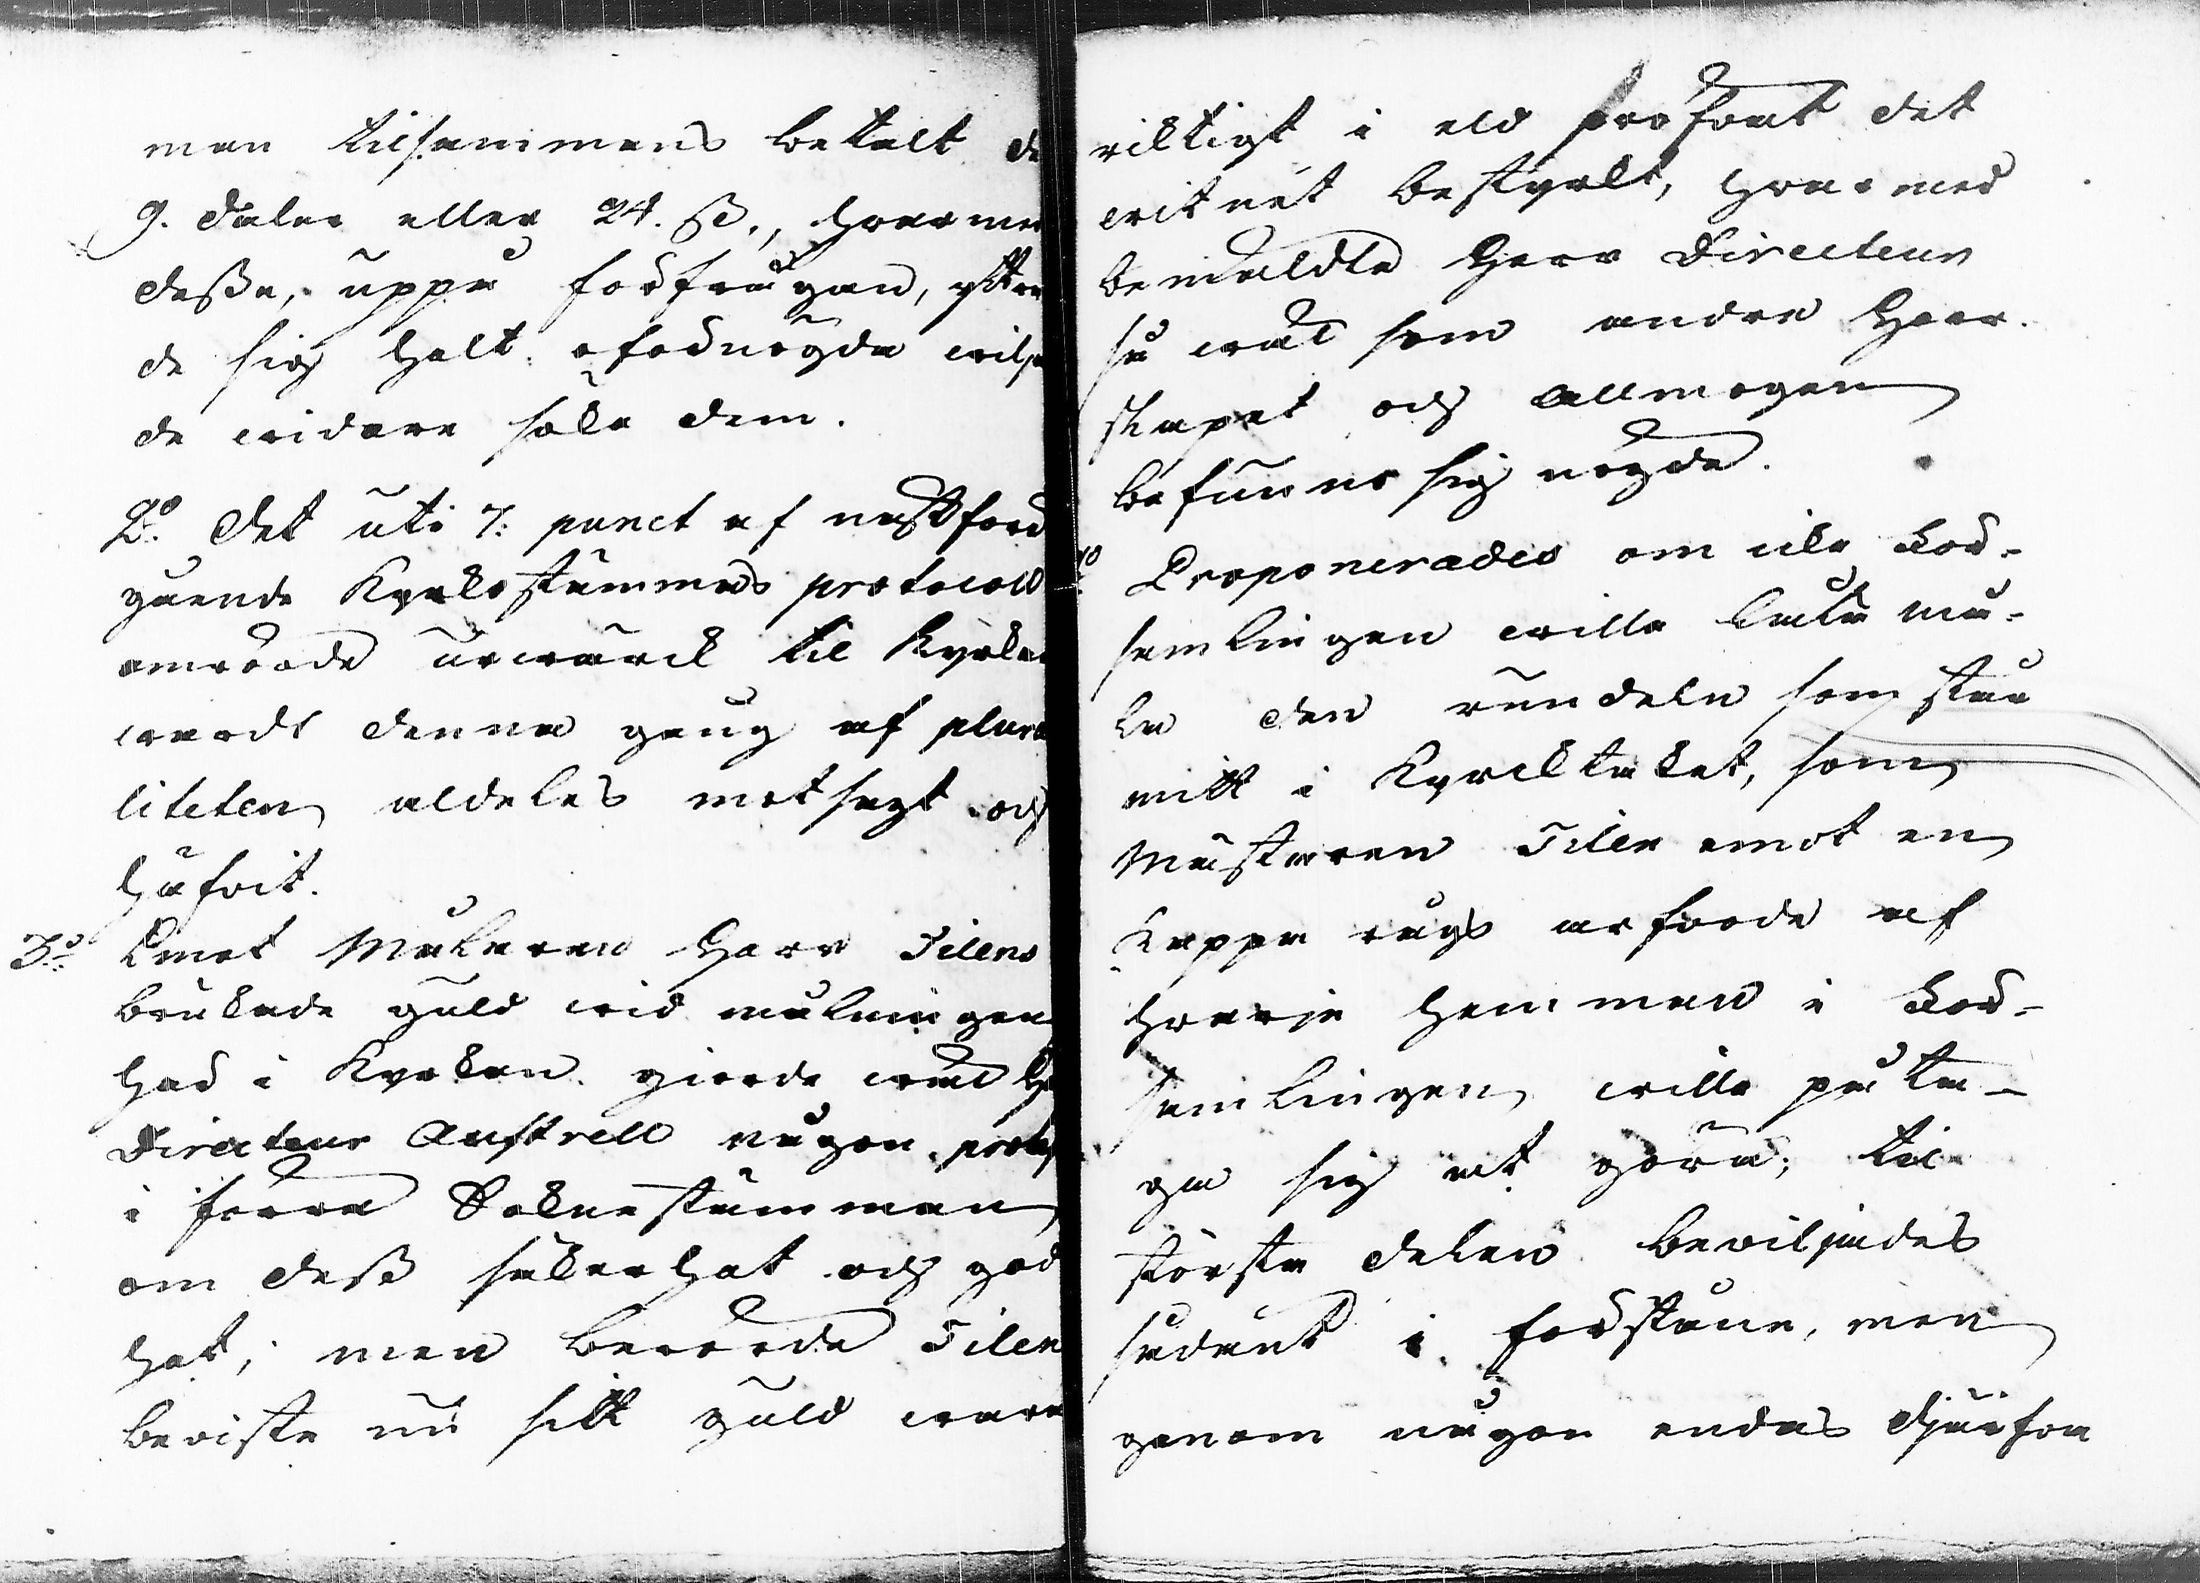 man tilsammans betalt de
9. daler eller 24. ß., hvarme
deße, uppå förfrågan, yttra
de sig helt oförnögda vilja
de vidare söka dem.
2:o Det uti 7: punct af nästföre
gående Kyrkostämmas protocoll
omrörde urvärck til Kyrkan
vardt denna gång af plura
liteten aldeles motsagt och
häfvit.
3:o Emot Målaren Herr Tilens
brukade guld vid målningen
had i Kyrkan giorde väl He
Directeur Anstrell någon protest
i förra Sokne stämman
om deß säkerhet och god
het; men berörde Tilen
beviste nu sitt guld vara
riktigt i eld profvat det
vitnet bestyrkt, hvarmed
bemäldte Herr Directeur
så väl som andra Herr-
skapet och Allmogen
befunno sig nögda.
Proponerades om icke För-
samlingen ville låta må-
la den rundeln som står
mitt i Kyrcktaket, som
Mästaren Tilen emot en
Kappe rågs arfvode af
hvarje hemman i För-
samlingen ville påta-
ga sig at göra; til
största delen beviljades
sådant i förstone, men
genom någon endas djerfva